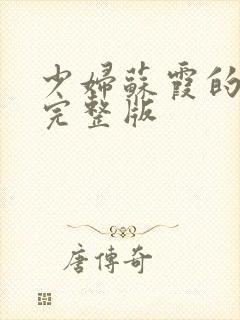 少婦蘇霞的
完整版
唐傳奇